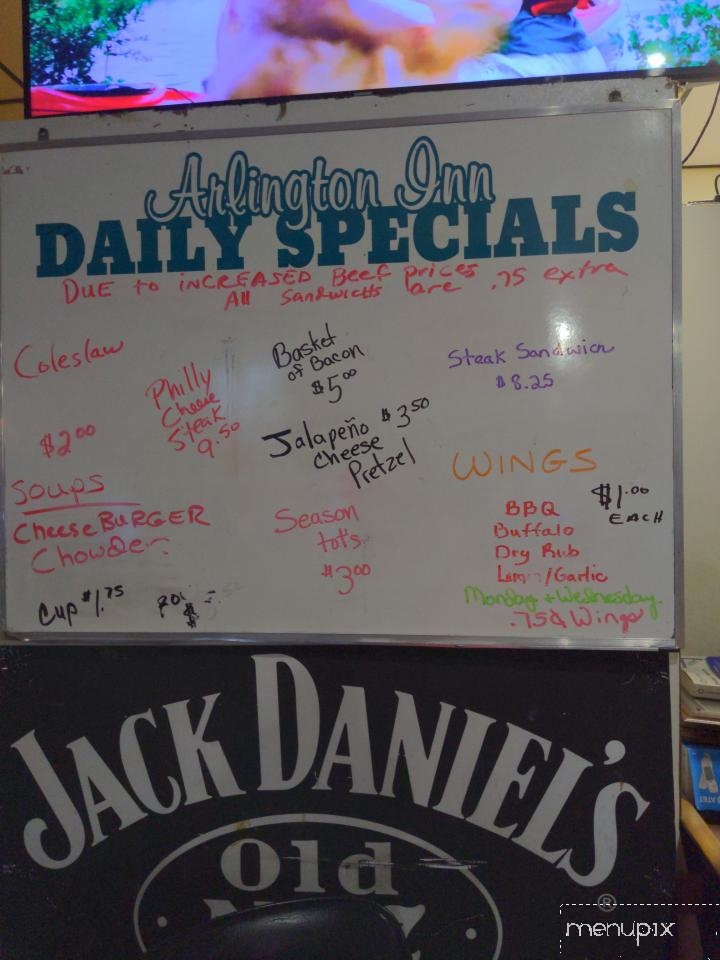 Arlington Inn
DAILY SPECIALS
DUE to iNCREASED Beef prices
All Sandwichs are .75 extra
Coleslaw
$2.00
Philly
Cheese
Steak
9.50
Basket
of Bacon
$5.00
Jalapeño $3.50
cheese
Pretzel
Steak Sandwich
$8.25
Soups
Cheese BURGER
Chowder
Cup $1.75
Season
tots
$3.00
WINGS
$1.00
EACH
BBQ
Buffalo
Dry Rub
/Garlic
Monday + Wednesday
.75¢ Wings
JACK DANIEL'S
®
Old
AT&T
menupix